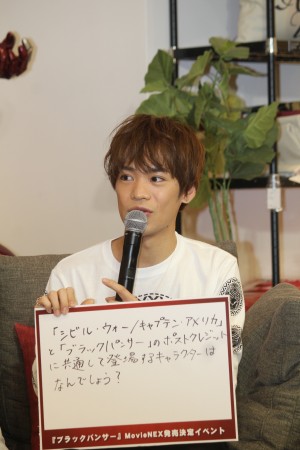 「シビル・ウォー/キャプテン・アメリカ」
と「ブラックパンサー」のポストクレジット
に共通して登場するキャラクターは
なんでしょう？
『ブラックパンサー』MovieNEX発売決定イベント